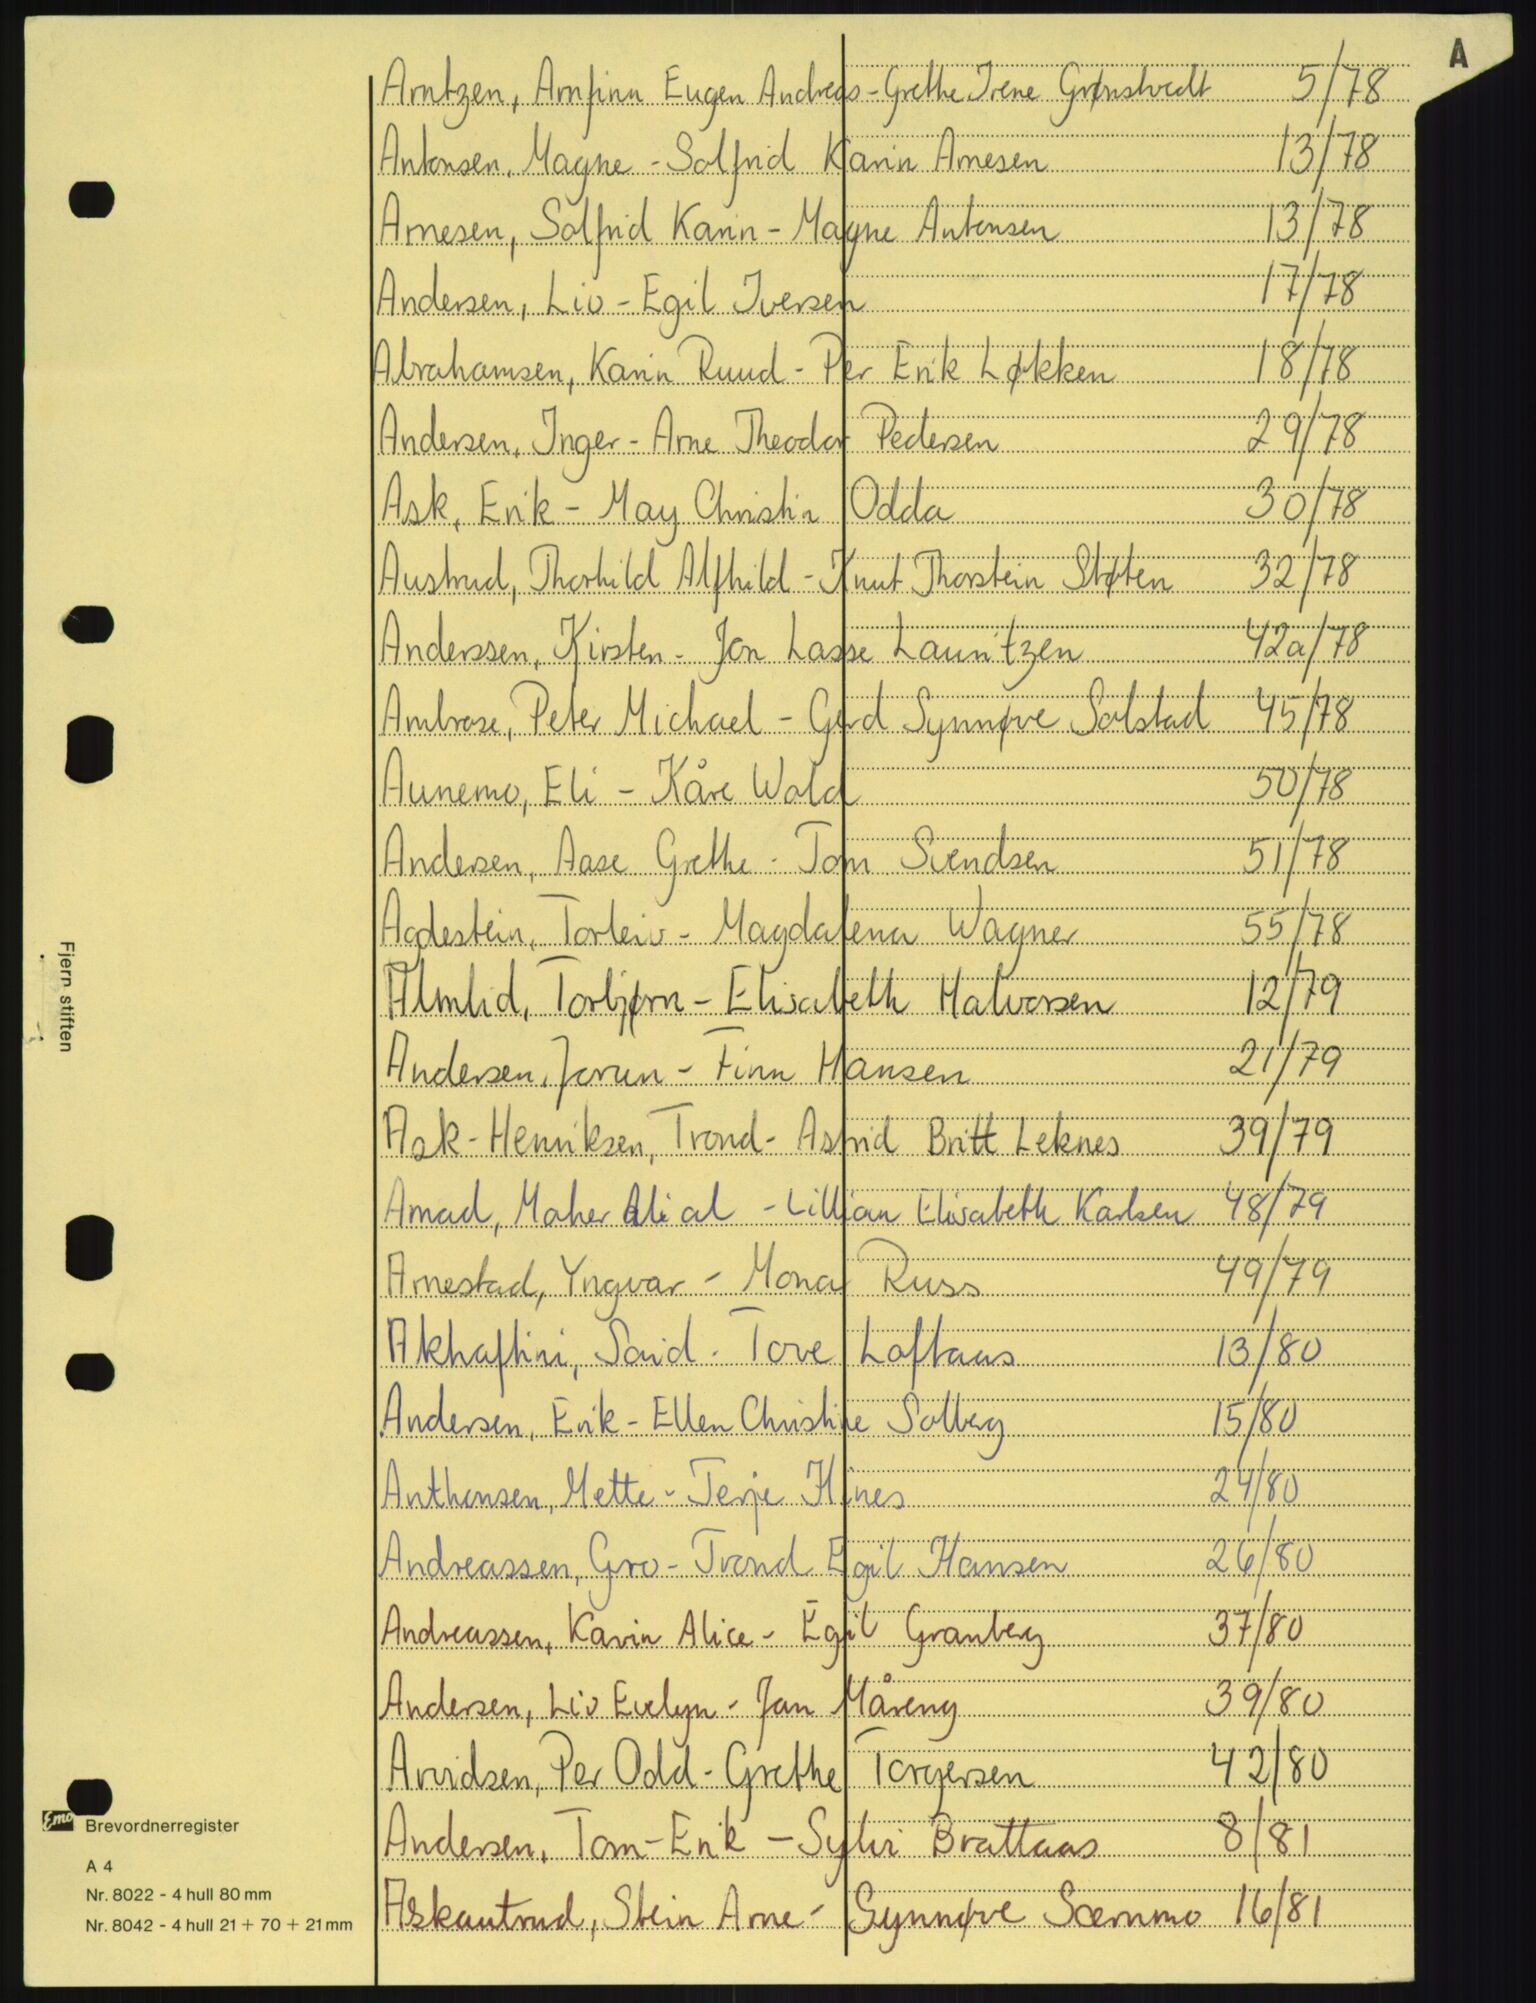 A
Arntzen, Arnfinn Eugen Andreas - Grethe Irene Grønstvedt 5/78
Antonsen, Magne - Solfrid Karin Arnesen 13/78
Arnesen, Solfrid Karin - Magne Antonsen 13/78
Andersen, Liv - Egil Iversen 17/78
Abrahamsen, Karin Ruud - Per Erik Løkken 18/78
Andersen, Inger - Arne Theodor Pedersen 29/78
Ask, Erik - May Christin Odda 30/78
Austrud, Thorhild Alfhild - Knut Thorstein Støten 32/78
Anderssen, Kirsten - Jon Lasse Lauritzen 42a/78
Ambrose, Peter Michael - Gerd Synnøve Solstad 45/78
Aunemo, Eli - Kåre Wold 50/78
Andersen, Aase Grethe - Tom Svendsen 51/78
Agdestein, Torleiv - Magdalena Wagner 55/78
Almlid, Torbjørn - Elisabeth Halvorsen 12/79
Andersen, Jorun - Finn Hansen 21/79
Ask-Henriksen, Trond - Astrid Britt Leknes 39/79
Amad, Maher Ali al - Lillian Elisabeth Karlsen 48/79
Arnestad, Yngvar - Mona Russ 49/79
Said - Tove Loftaas 13/80
Andersen, Erik - Ellen Christine Solberg 15/80
Anthonsen, Mette - Terje Hines 24/80
Andreassen, Gro - Trond Egil Hansen 26/80
Andreassen, Karin Alice - Egil Granberg 37/80
Andersen, Liv Evelyn - Jan Måreng 39/80
Arvidsen, Per Odd - Grethe Torgersen 42/80
Andersen, Tom-Erik - Sylvi Brattaas 8/81
Askautrud, Stein Arne - Synnøve Særnmo 16/81
Fjern stiften
Emo Brevordnerregister
A 4
Nr. 8022 - 4 hull 80 mm
Nr. 8042 - 4 hull 21 + 70 + 21 mm